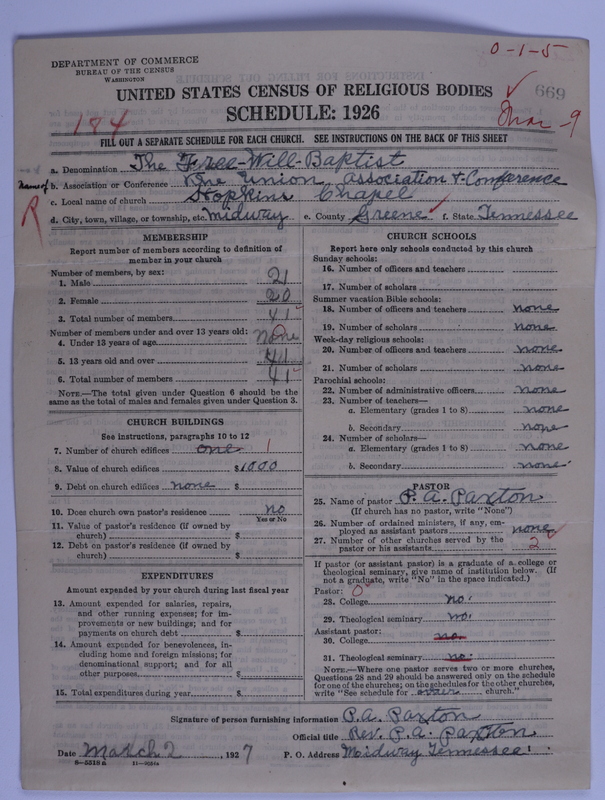 0-1-5
DEPARTMENT OF COMMERCE
BUREAU OF THE CENSUS
WASHINGTON
669
UNITED STATES CENSUS OF RELIGIOUS BODIES
184
SCHEDULE: 1926
Mar 9
FILL OUT A SEPARATE SCHEDULE FOR EACH CHURCH. SEE INSTRUCTIONS ON THE BACK OF THIS SHEET
a. Denomination The Free-Will-Baptist
Name of b. Association or Conference Union Association & Conference
c. Local name of church Hopkins Chapel
R d. City, town, village, or township, etc. Midway e. County Greene f. State Tennessee
MEMBERSHIP
Report number of members according to definition of
member in your church
Number of members, by sex:
1. Male 21
2. Female 20
3. Total number of members 41
Number of members under and over 13 years old:
4. Under 13 years of age none
5. 13 years old and over 41
6. Total number of members 41
NOTE.—The total given under Question 6 should be
same as the total of males and females given under Question 3.
CHURCH BUILDINGS
See instructions, paragraphs 10 to 12
7. Number of church edifices one 1
8. Value of church edifices $1000
9. Debt on church edifices none $
10. Does church own pastor's residence no
Yes or No
11. Value of pastor's residence (if owned by
church) $
12. Debt on pastor's residence (if owned by
church) $
EXPENDITURES
Amount expended by your church during last fiscal year
13. Amount expended for salaries, repairs,
and other running expenses; for im-
provements or new buildings; and for
payments on church debt $
14. Amount expended for benevolences, in-
cluding home and foreign missions; for
denominational support; and for all
other purposes $
15. Total expenditures during year $
CHURCH SCHOOLS
Report here only schools conducted by this church
Sunday schools:
16. Number of officers and teachers
17. Number of scholars
Summer vacation Bible schools:
18. Number of officers and teachers none
19. Number of scholars none
Week-day religious schools:
20. Number of officers and teachers none
21. Number of scholars none
Parochial schools:
22. Number of administrative officers none
23. Number of teachers—
a. Elementary (grades 1 to 8) none
b. Secondary none
24. Number of scholars—
a. Elementary (grades 1 to 8) none
b. Secondary none
PASTOR
25. Name of pastor P. A. Paxton
(If church has no pastor, write "None")
26. Number of ordained ministers, if any, em-
ployed as assistant pastors none
27. Number of other churches served by the
pastor or his assistants 2
If pastor (or assistant pastor) is a graduate of a college or
theological seminary, give name of institution below. (If
not a graduate, write "No" in the space indicated.)
Pastor: 0
28. College no.
29. Theological seminary no.
Assistant pastor:
30. College no.
31. Theological seminary no.
NOTE.—Where one pastor serves two or more churches,
Questions 28 and 29 should be answered only on the schedule
for one of the churches; on the schedules for the other churches,
write "See schedule for church."
Signature of person furnishing information P.A. Paxton
Official title Rev. P. A. Paxton
Date March 2, 1927 P. O. Address Midway Tennessee
8-5318a